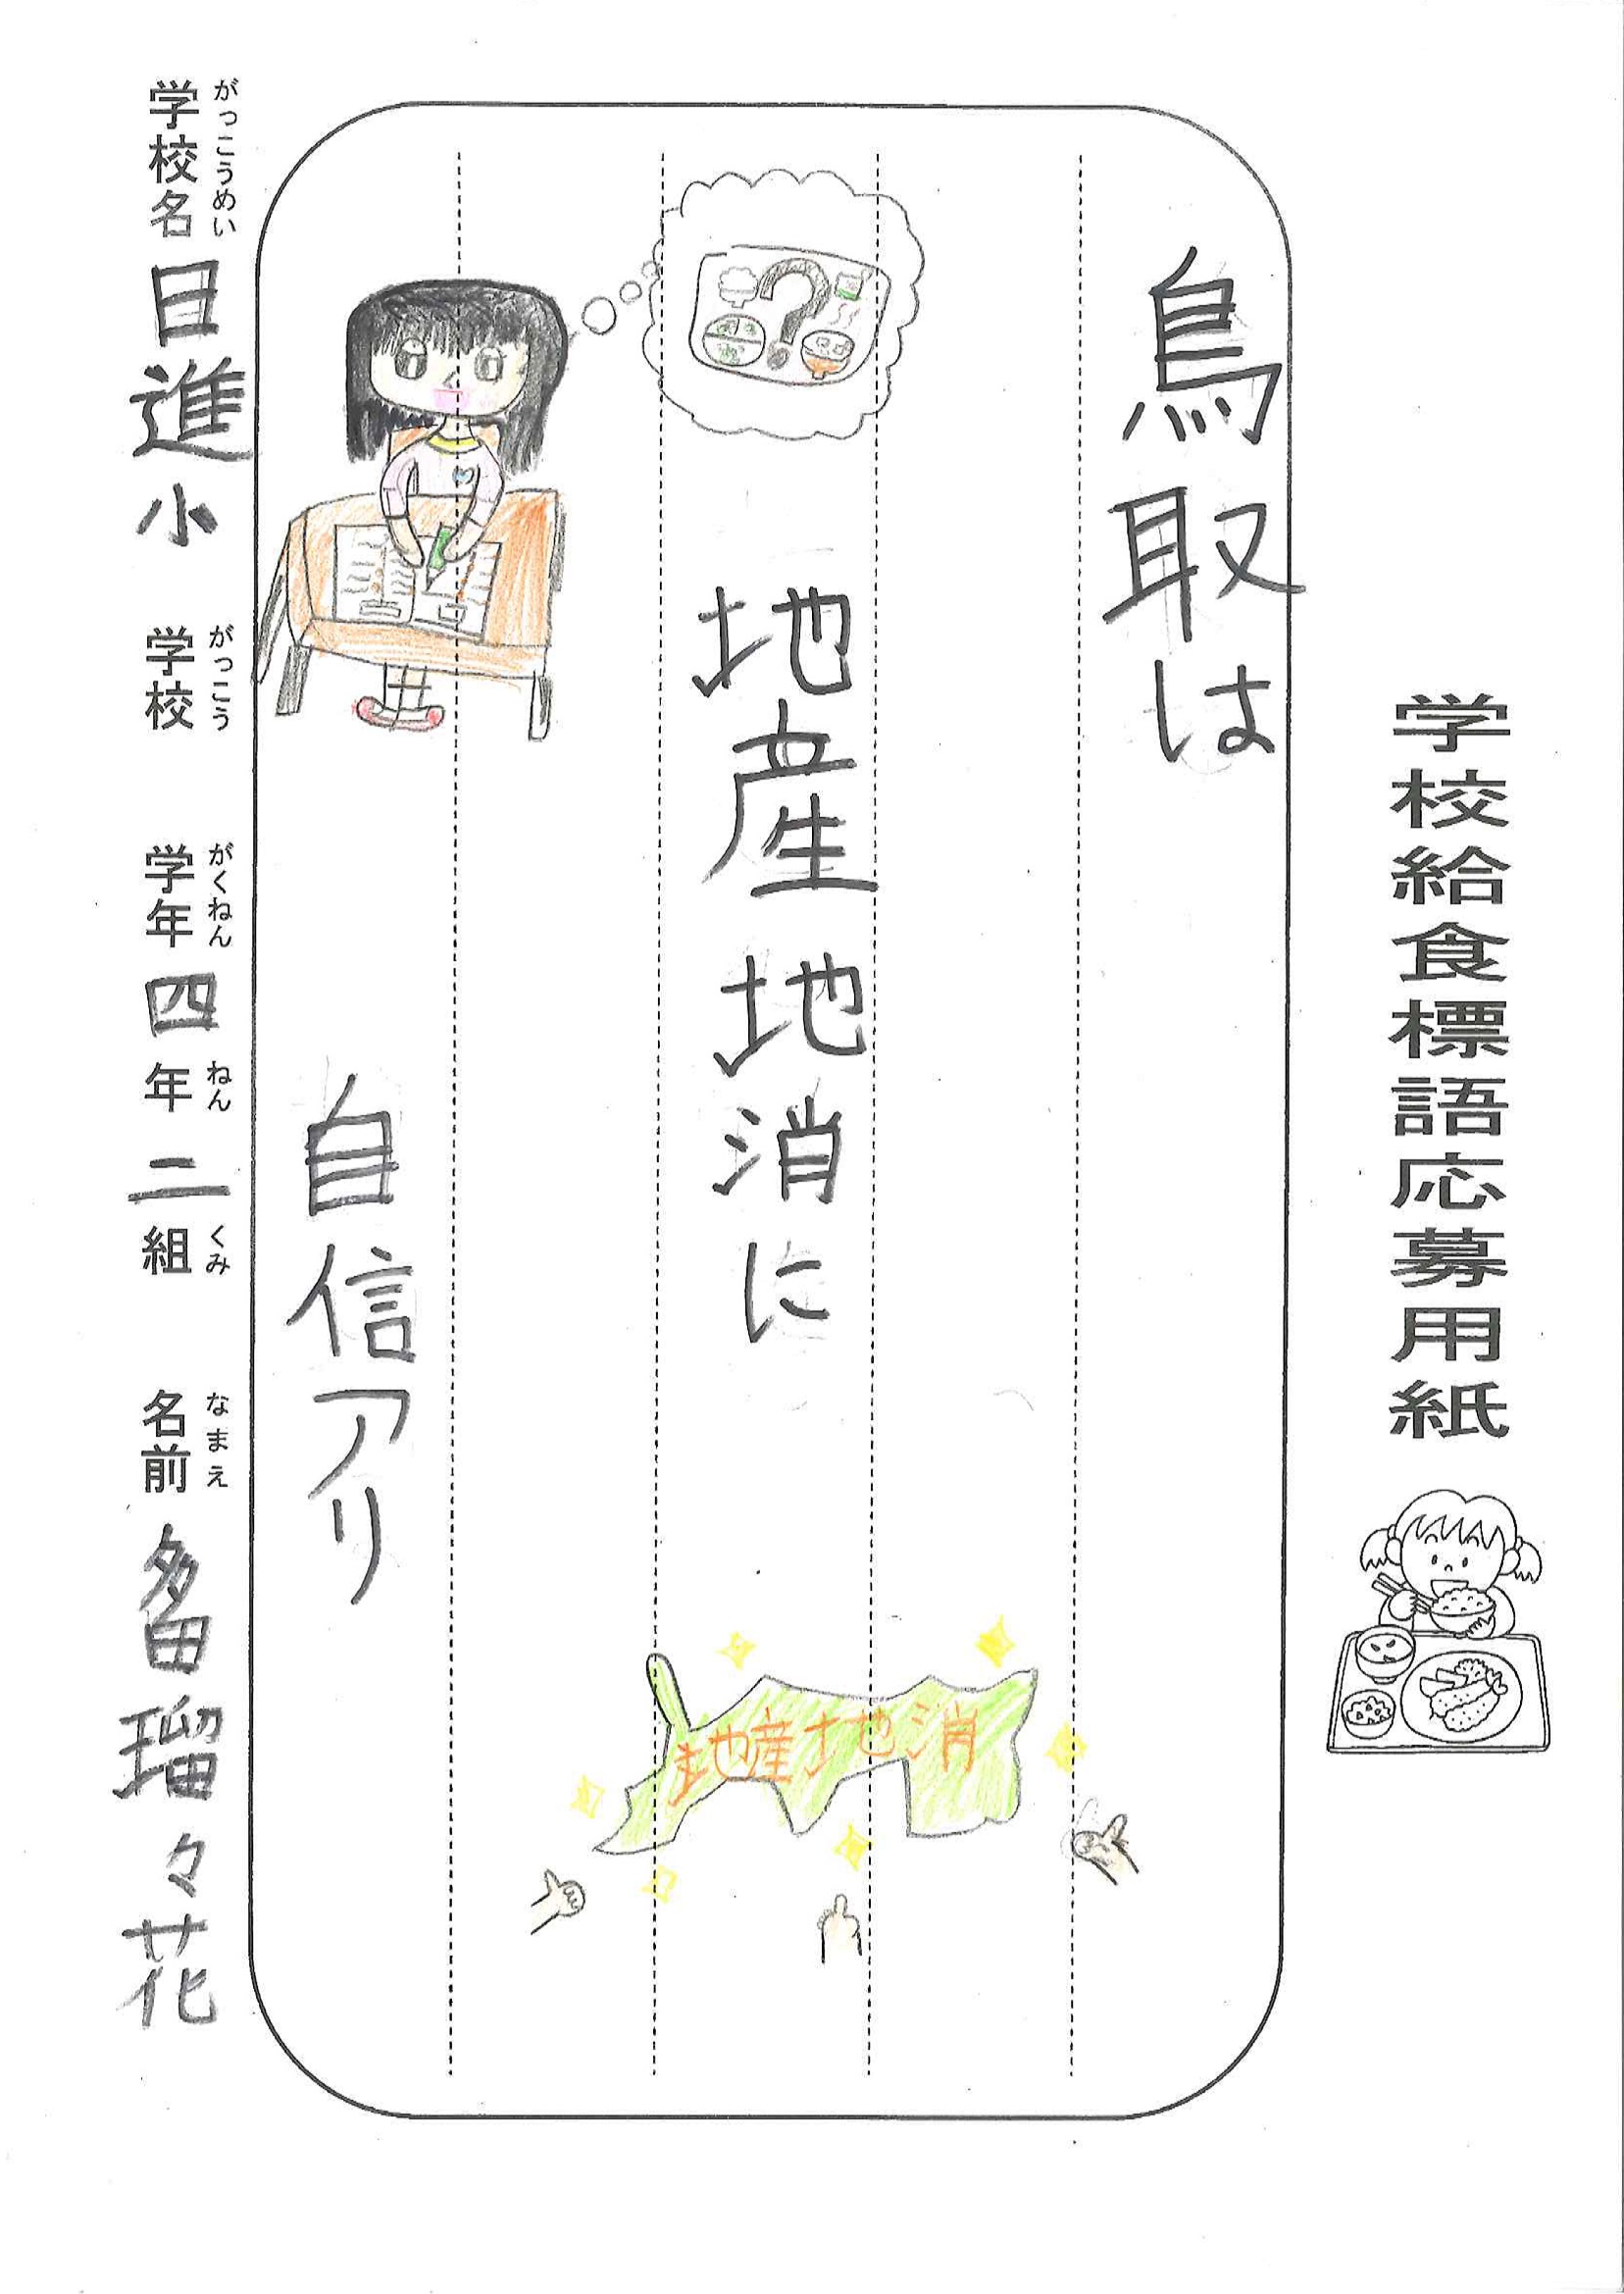 学校給食標語応募用紙
鳥取は
地産地消に
自信アリ
地産地消
がっこうめい　がっこう　がくねん　ねん　くみ　なまえ
学校名 日進小 学校 学年 四年 二組 名前 多田瑠々花